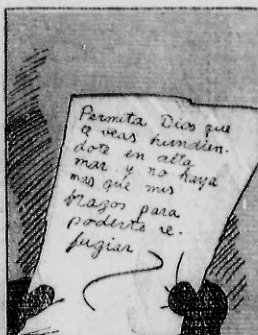 Permita Dios que
te veas hundien.
dote en alta
mar. y no haya
mas que mis
brazos para
poderte re.
fugiar